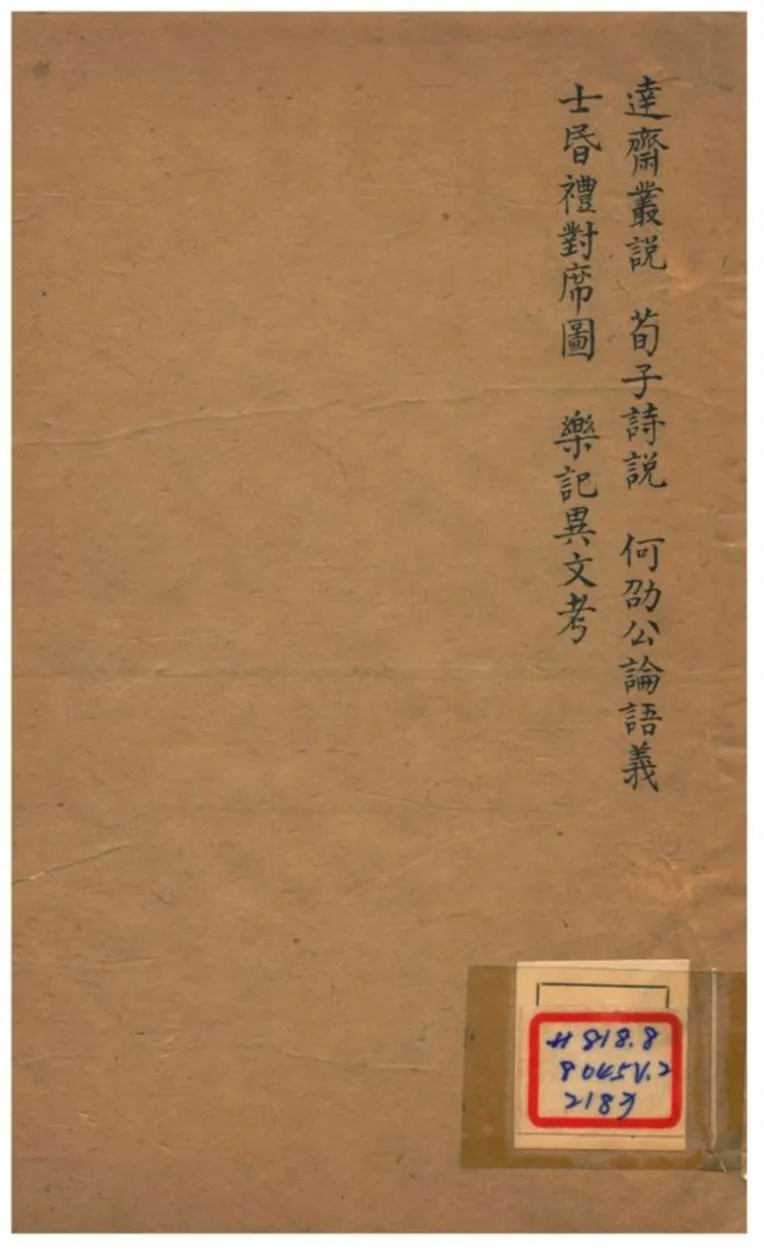 達齋叢説　荀子詩説　何劭公論語義
士昏禮對席圖　樂記異文考